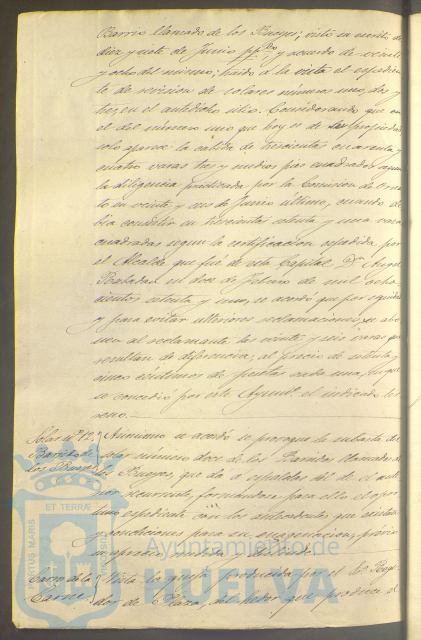 Barrio llamado de los Bueyes; visto su escrito de
diez y siete de Junio ppdo y acuerdo de veinte
y ocho del mismo; traido á la vista el espedien
te de revision de solares números uno, dos y
tres, en el antedicho sitio. Considerando que en
el del número uno que hoy es de su propiedad
solo aparece la cabida de trescientas cincuenta y
cuatro varas tres y medios pies cuadrados segun
la diligencia practicada por la Comision de Orna
to en veinte y uno de Junio último, cuando de
bia consistir en trescientas ochenta y una varas
cuadradas segun la certificacion espedida por
el Alcalde que fué de esta Capital Dn
en doce de Febrero de mil ocho
cientos ochenta y uno, se acordó que por equidad
y para evitar ulteriores reclamaciones, se abo
nen al reclamante las veinte y seis varas que
resultan de diferencia; al precio de
cinco céntimos de pesetas cada una, en que
se concedio por este Ayuntº el indicado ter
reno.
Solar nº 12.
Barrio de
los Bueyes
Asimismo se acordó se proroque la subasta del
solar número doce de los Barrios llamados de
los Bueyes, que dá á espaldas del de el ante
rior recurrente, formándose para ello el opor
tuno espediente con los antecedentes que existan
y condiciones para su enagenacion, prévio
Carro de la
Carne.
Vista la queja producida por el Sr. Regi
dor de Plaza, del hedor que produce el
PORTUS MARIS
ET TERRÆ
Ayuntamiento de
HUELVA